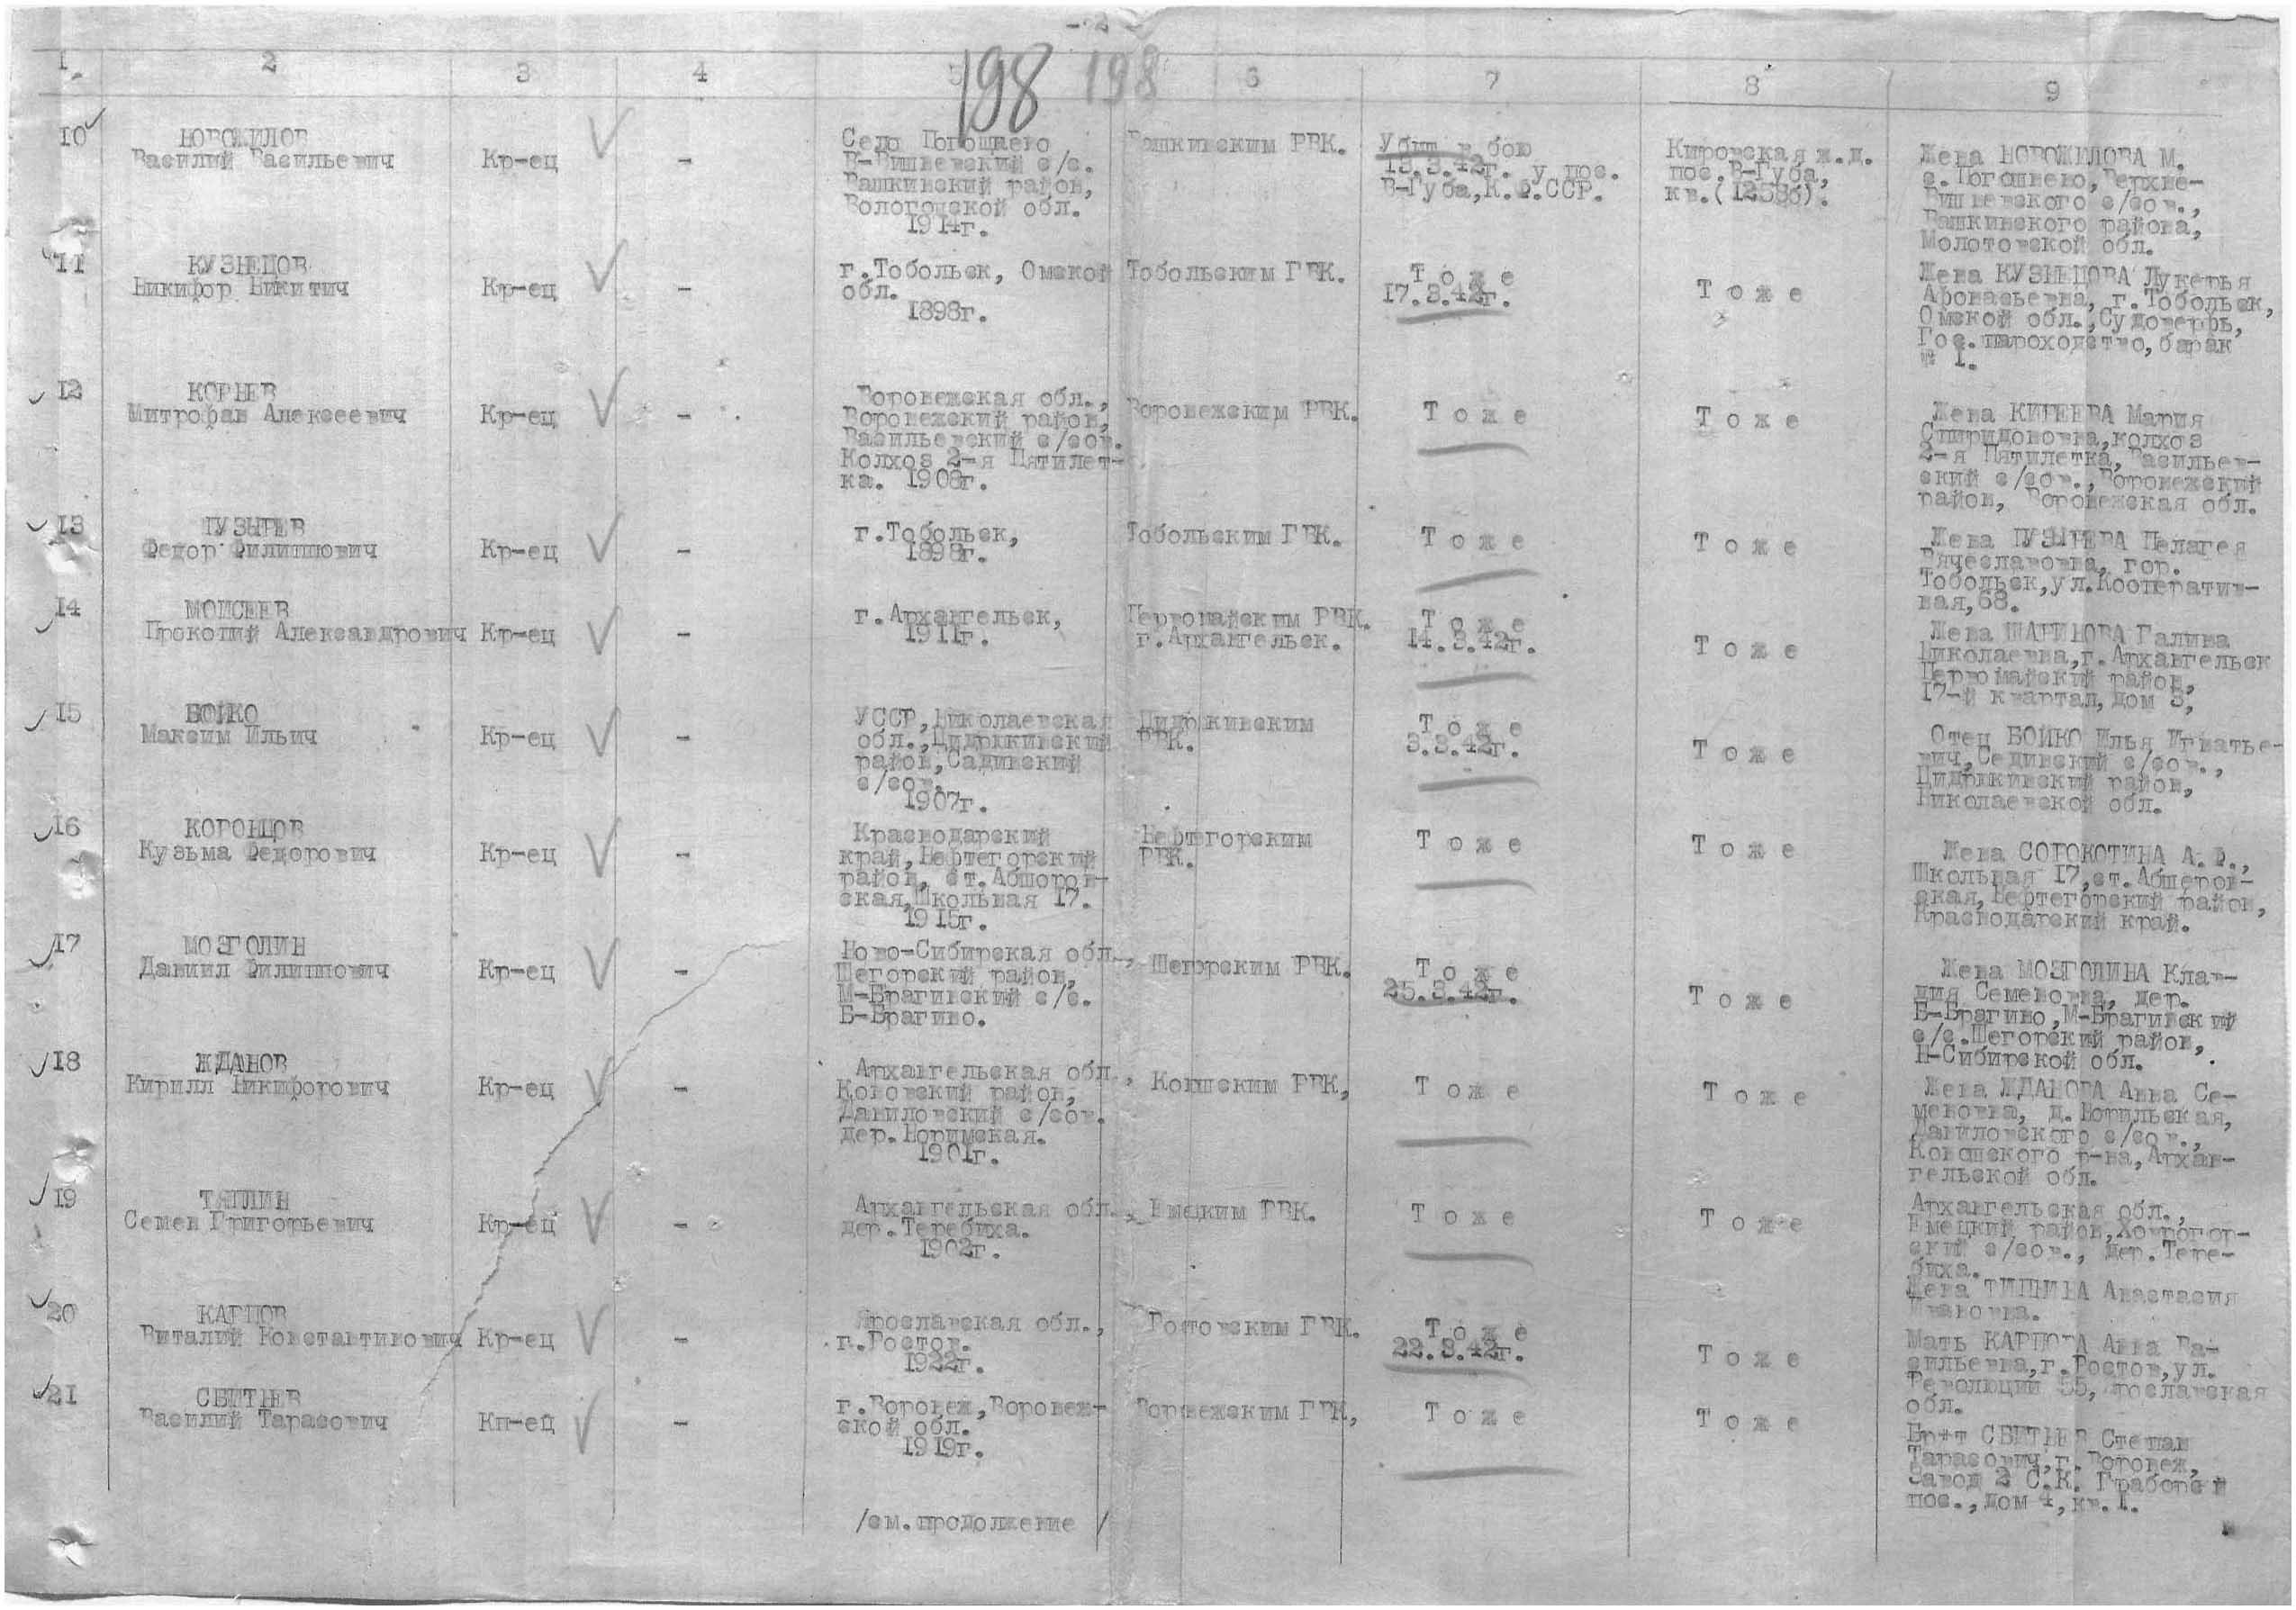 - 2
198 198
1 2 3 4 5 6 7 8 9
10 НОВОЖИЛОВ
Василий Васильевич
Кр-ец
-
Село Погошнево
В-Вишневский с/с.
Вашкинский район,
Вологодской обл.
1914г.
Вошкинским РВК.
Убит в бою
13.3.42г. у пос.
В-Губа, К.Ф.ССР.
Кировская ж.д.
пос.В-Губа,
кв.(1258б).
Жена НОВОЖИЛОВА М.
с.Погошнево, Верхне-
Вишневского с/сов.,
Вашкинского района,
Молотовской обл.
11 КУЗНЕЦОВ
Никифор Никитич
Кр-ец
-
г.Тобольск, Омской
обл.
1898г.
Тобольским ГВК.
Т о ж е
17.3.42г.
Т о ж е
Жена КУЗНЕЦОВА Лукерья
Афонасьевна, г.Тобольск,
Омской обл.,Судоверфь,
Гос.пароходство, барак
№ 1.
12 КОРНЕВ
Митрофан Алексеевич
Кр-ец
-
Воронежская обл.,
Воронежский район,
Васильевский с/сов.
Колхоз 2-я Пятилет-
ка. 1908г.
Воронежским РВК.
Т о ж е
Т о ж е
Жена КИРЕЕВА Мария
Спиридоновна,колхоз
2-я Пятилетка, Васильев-
ский с/сов.,Воронежский
район, Воронежская обл.
13 ПУЗЫРЕВ
Федор Филиппович
Кр-ец
-
г.Тобольск,
1898г.
Тобольским ГВК.
Т о ж е
Т о ж е
Жена ПУЗЫРЕВА Пелагея
Вячеславовна, гор.
Тобольск,ул.Кооператив-
ная,68.
14 МОИСЕЕВ
Прокопий Александрович
Кр-ец
-
г.Архангельск,
1911г.
Первомайским РВК.
г.Архангельск.
Т о ж е
14.3.42г.
Т о ж е
Жена ШАРИНОВА Галина
Николаевна,г.Архангельск
Первомайский район,
17-й квартал, дом 3,
15 БОЙКО
Максим Ильич
Кр-ец
-
УССР,Николаевская
обл.,Цидрикивский
район,Садивский
с/сов.
1907г.
Цидрикивским
РВК.
Т о ж е
3.3.42г.
Т о ж е
Отец БОЙКО Илья Игнатье-
вич,Седивский с/сов.,
Цидрикивский район,
Николаевской обл.
16 КОРОНЦОВ
Кузьма Федорович
Кр-ец
-
Краснодарский
край,Нефтегорский
район, ст.Абшерон-
ская,Школьная 17.
1915г.
Нефтегорским
РВК.
Т о ж е
Т о ж е
Жена СОРОКОТИНА А.Ф.,
Школьная 17,ст.Абшерон-
ская,Нефтегорский район,
Краснодарский край.
17 МОЗГОЛИН
Даниил Филиппович
Кр-ец
-
Ново-Сибирская обл.,
Шегорский район,
М-Брагинский с/с.
Б-Брагино.
Шегорским РВК.
Т о ж е
25.3.42г.
Т о ж е
Жена МОЗГОЛИНА Клав-
дия Семеновна, дер.
Б-Брагино,М-Брагинский
с/с.Шегорский район,
Н-Сибирской обл.
18 ЖДАНОВ
Кирилл Никифорович
Кр-ец
-
Архангельская обл.,
Коновский район,
Даниловский с/сов.
дер.Норимская.
1901г.
Коношским РВК,
Т о ж е
Т о ж е
Жена ЖДАНОВА Анна Се-
меновна, д.Нотильская,
Даниловского с/сов.,
Коношского р-на, Архан-
гельской обл.
19 ТЯПНИН
Семен Григорьевич
Кр-ец
-
Архангельская обл.
дер.Теребиха.
1902г.
Емецким РВК.
Т о ж е
Т о ж е
Архангельская обл.,
Емецкий район,Ховрогор-
ский с/сов., дер.Тере-
биха.
Жена ТИПНИНА Анастасия
Ивановна.
20 КАРПОВ
Виталий Константинович
Кр-ец
-
Ярославская обл.,
г.Ростов.
1922г.
Ростовским ГВК.
Т о ж е
22.3.42г.
Т о ж е
Мать КАРПОВА Анна Ва-
сильевна,г.Ростов,ул.
Революции 55, Ярославская
обл.
21 СБИТНЕВ
Василий Тарасович
Кп-ец
-
г.Воронеж,Воронеж-
ской обл.
1919г.
Воронежским ГВК,
Т о ж е
Т о ж е
Бр+т СБИТНЕВ Степан
Тарасович,г.Воронеж,
Завод 2 С.К. Граборей
пос.,дом 4,кв.1.
/см.продолжение /